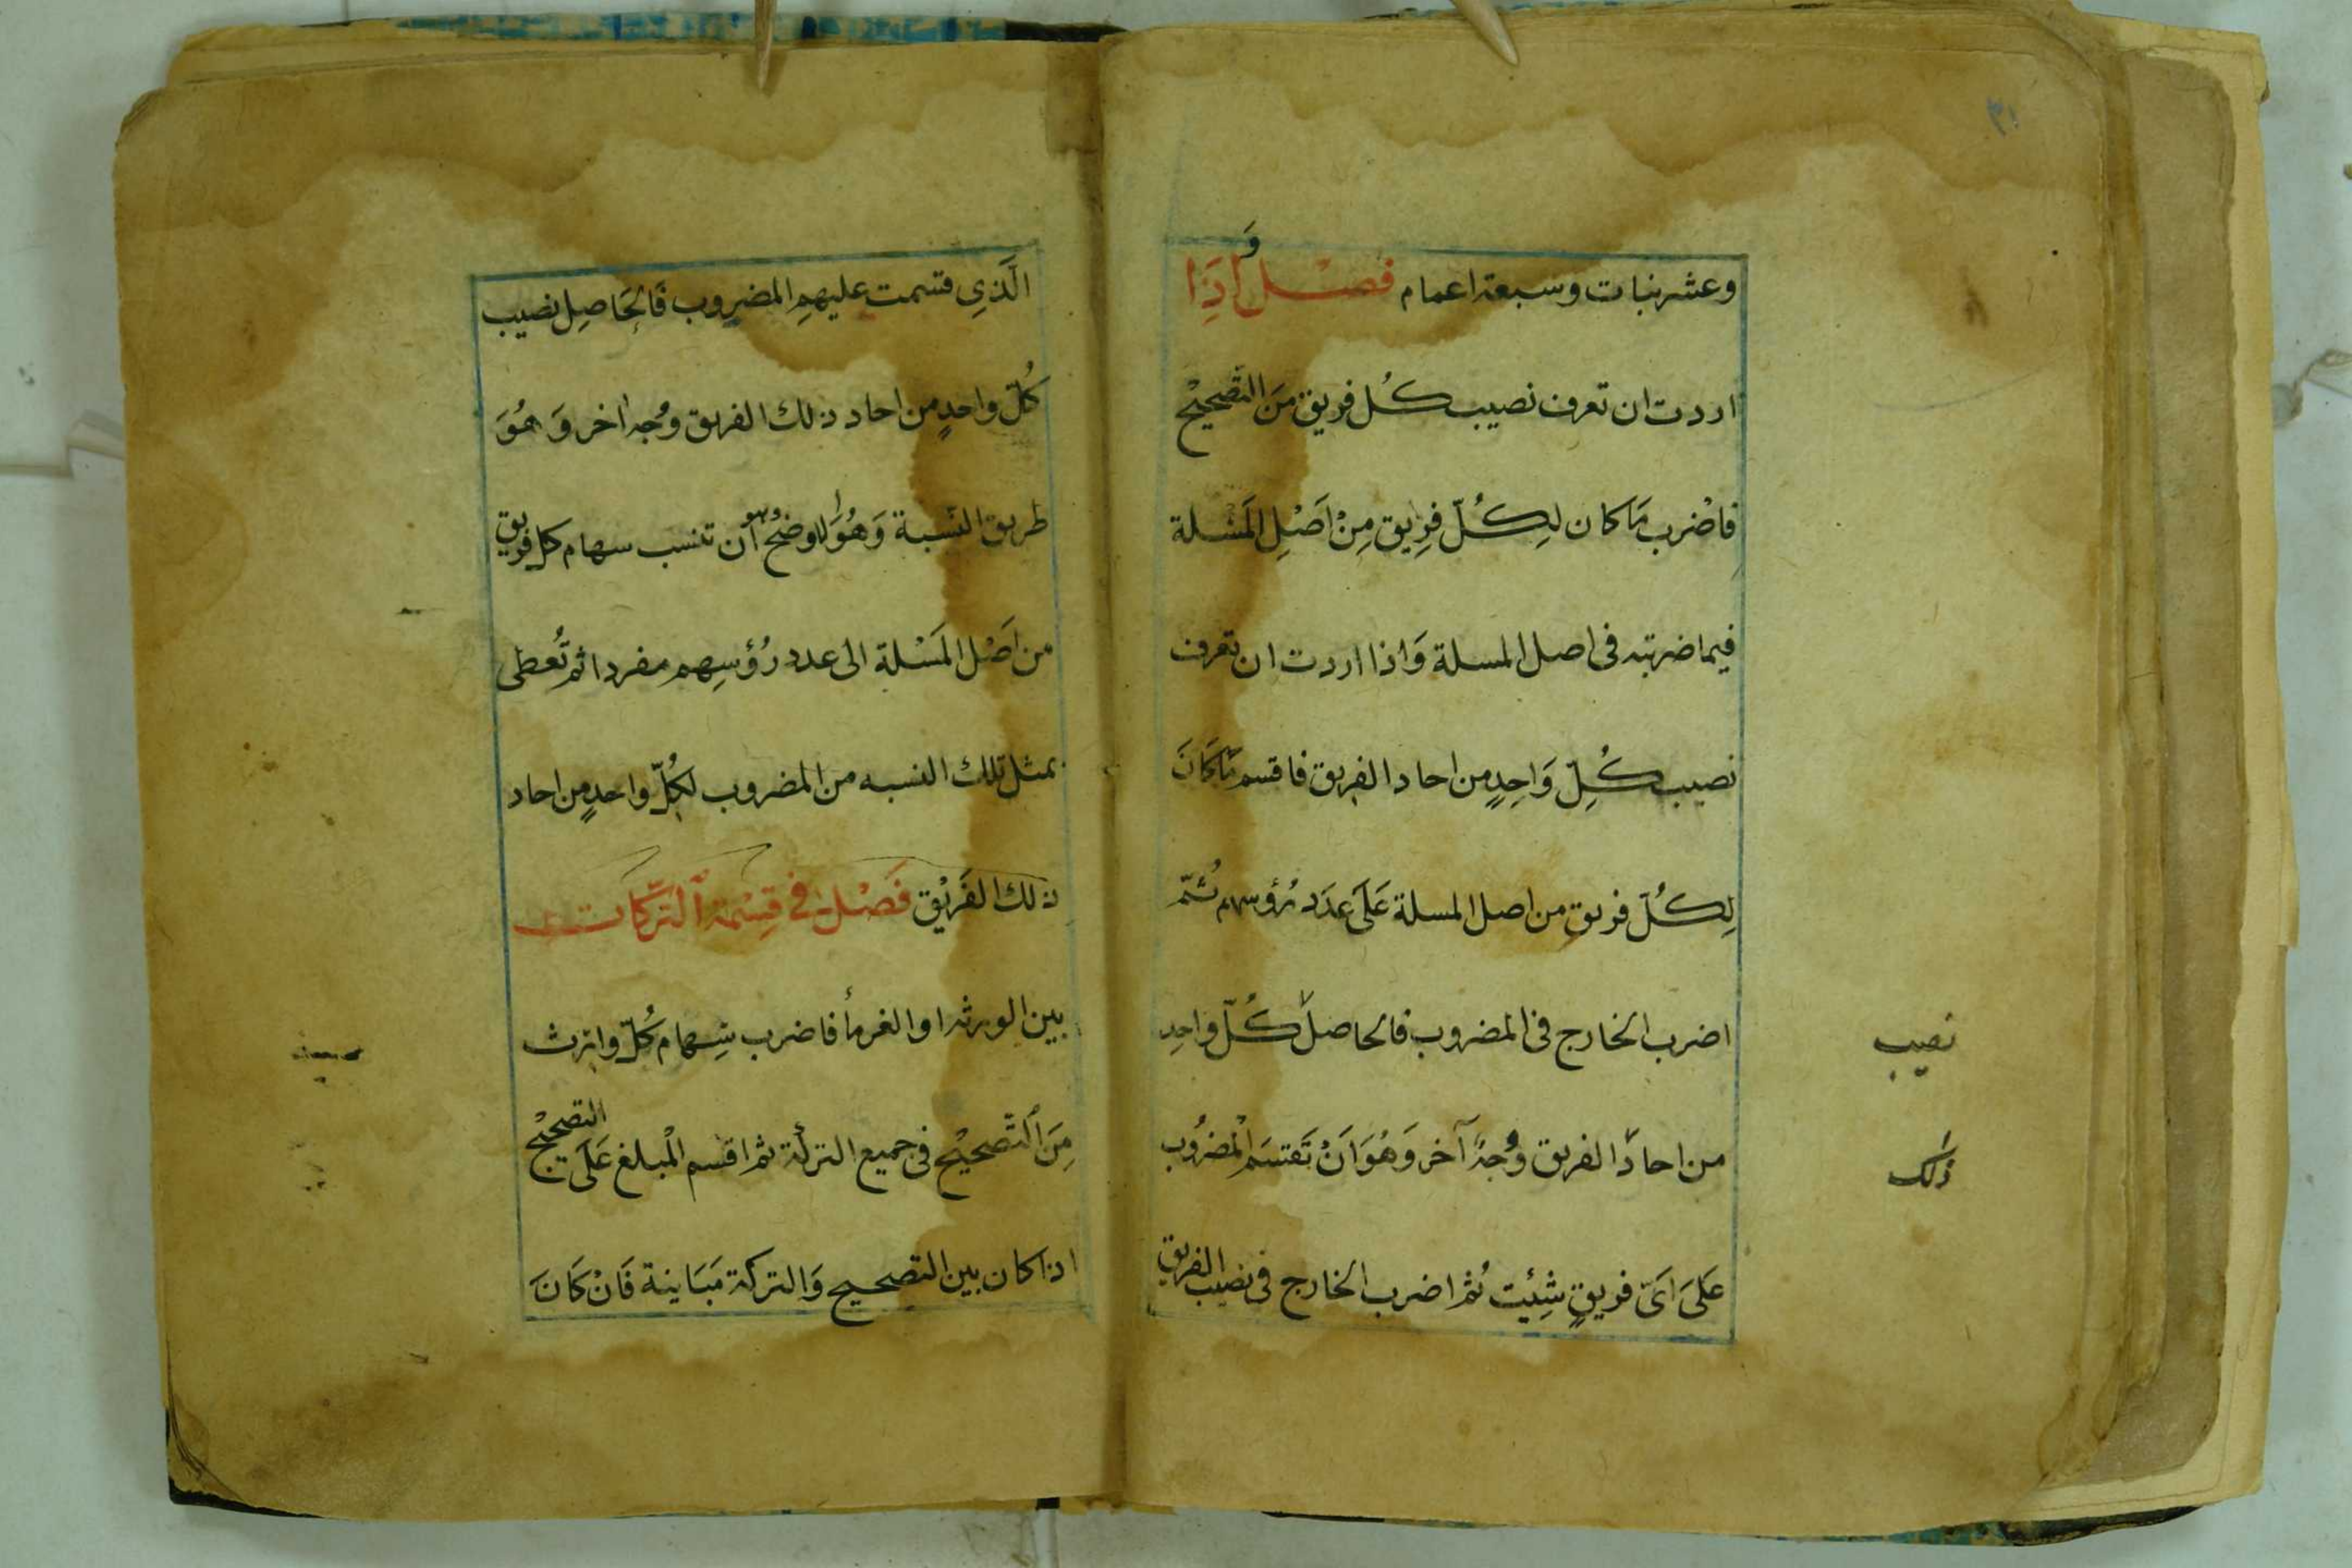 وعشر بنات وسبعة اعمام فصْل وَاذَِا
اردت ان تعرف نصيب كُل فريق مَن التَّصْحيحْ
فاضْرب مَا كان لِكُلّ فرِيق مِنْ اَصْلِ المَسْلة
فيما ضربته فى اصل المسلة وَاذا اردت ان تعرف
نصيب كُلِّ وَاحِدٍ من احاد الفريق فاقسم مَا كَانَ
لِكُلّ فريق من اصل المسلة عَلَى عَدَد رُؤسهم ثُمّ
اضرب الخارج فى المضروب فالحاصل كُلّ واحِدِ
نصيب
من احاد الفريق وُجهٌ آخر وَهُوَ اَنْ تَقتسَم الْمضرُوب
ذلك
عَلَىَ اَىّ فريقٍ شِئِت ثُم اضرب الخارج فى نصيب الفريق
الَّذِى قسمت عليهمِ المضروب فَالحَاصِل نصيب
كُلّ واحدٍ من احاد ذلك الفريق وُجه اخر وَهُوَ
طريق النّسبة وَهُوَ الاوضحُ وهو أن تنسب سهام كل فريق
من اَصْل المَسْلة الى عدد رُؤسِهم مفردا ثم تُعطى
بمثل تلك النسبه من المضروب لكُلّ واحدٍ من احاد
ذلك الفَرِيْق فَصْل فى قِسْمة اَلتَّرِكات
بين الورثه او الغرمأ فاضرب سِهام كُلّ وارث
مِنَ اَلتَّصحيْح فى جميع التركة ثم اقسم الْمبلغ عَلَى التصحيْح
اذا كان بين التصحيح وَالتركة مَبَاينة فَانْ كَانَ